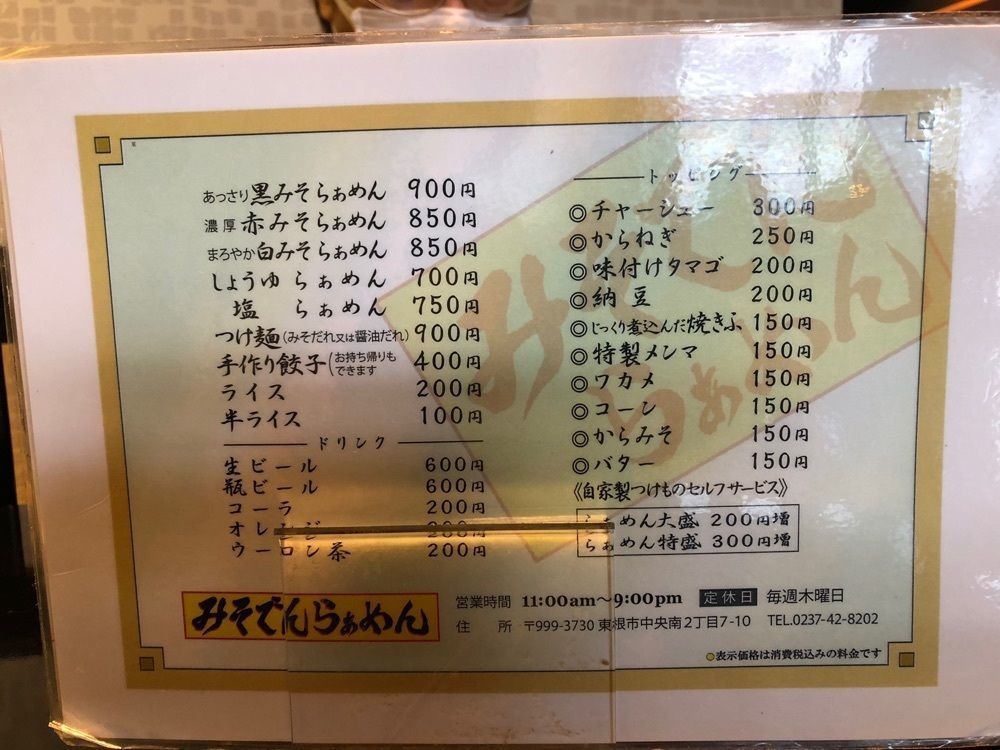 あっさり黒みそらぁめん 900円
濃厚 赤みそらぁめん 850円
まろやか白みそらぁめん 850円
しょうゆ らぁめん 700円
塩 らぁめん 750円
つけ麺(みそだれ又は醤油だれ) 900円
手作り餃子(お持ち帰りもできます 400円
ライス 200円
半ライス 100円
ドリンク
生ビール 600円
瓶ビール 600円
コーラ 200円
オレンジ 200円
ウーロン茶 200円
トッピング
◎チャーシュー 300円
◎からねぎ 250円
◎味付けタマゴ 200円
◎納豆 200円
◎じっくり煮込んだ焼きふ 150円
◎特製メンマ 150円
◎ワカメ 150円
◎コーン 150円
◎からみそ 150円
◎バター 150円
《自家製つけものセルフサービス》
らぁめん大盛 200円増
らぁめん特盛 300円増
みそでんらぁめん
営業時間 11:00am~9:00pm 定休日 毎週木曜日
住 所 〒999-3730 東根市中央南2丁目7-10 TEL.0237-42-8202
●表示価格は消費税込みの料金です